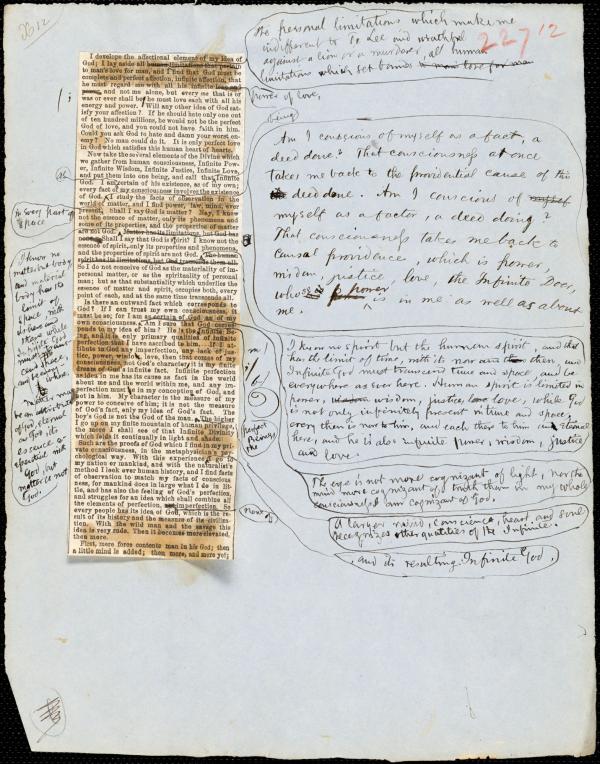 The personal limitations which make me
indifferent to a bee and wrathful
against a lion or a murderer, all human
limitations which set bounds
power of love,
being
227 12
I develope the affectional element of my idea of
God; I lay aside all human limitations that pertain
to man's love for man, and I find that God must be
complete and perfect affection, infinite affection, that
he must regard me with all his infinite love and
power, and not me alone, but every one that is or
was or ever shall be; he must love each with all his
energy and power. Will any other idea of God sat-
isfy your affection? If he should hate only one out
of ten hundred millions, he would not be the perfect
God of love, and you could not have faith in him.
Could you ask God to hate and damn your worst en-
emy? No man could do it. It is only perfect love
in God which satisfies this human heart of hearts.
Now take the several elements of the Divine which
we gather from human consciousness, Infinite Pow-
er, Infinite Wisdom, Infinite Justice, Infinite Love,
and put them into one being, and call that Infinite
God. I am certain of his existence, as of my own;
every fact of my consciousness involves the existence
of God. I study the facts of observation in the
world of matter, and I find power, law, mind, ever
present. Shall I say God is matter? Nay, I know
not the essence of matter, only its phenomena and
some of its properties, and the properties of matter
are not God. Matter has its limitations, but God has
none. Shall I say that God is spirit? I know not the
essence of spirit, only its properties and phenomena,
and the properties of spirit are not God. The human
spirit has its limitations, but God transcends them all.
So I do not conceive of God as the materiality of im-
personal matter, or as the spirituality of personal
man; but as that substantiality which underlies the
essence of matter and spirit, occupies both, every
point of each, and at the same time transcends all.
Is there an outward fact which corresponds to
God? If I can trust my own consciousness, it
must be so; for I am as certain of God as of my
own consciousness. Am I sure that God corres-
ponds to my idea of him? He is the Infinite Be-
ing, and it is only primary qualities of infinite
perfection that I have ascribed to him. If I at-
tribute to God any imperfection, any lack of jus-
tice, power, wisdom, love, then this comes of my
consciousness, not God's character; it is my finite
dream of God's infinite fact. Infinite perfection
as idea in me has its cause as fact in the world
about me and the world within me, and any im-
perfection must be in my conception of God, and
not in him. My character is the measure of my
power to conceive of him; it is not the measure
of God's fact, only my idea of God's fact. The
boy's God is not the God of the man. The higher
I go up on my finite mountain of human privilege,
the more I shall see of that Infinite Divinity
which folds it continually in light and shade.
Such are the proofs of God which I find in my pri-
vate consciousness, in the metaphysician's psy-
chological way. With this experience I go to
my nation or mankind, and with the naturalist's
method I look over human history, and I find facts
of observation to match my facts of conscious-
ness, for mankind sees in large what I do in lit-
tle, and has also the feeling of God's perfection,
and struggles for an idea which shall combine all
the elements of perfection, no imperfection. So
every people has its idea of God, which is the re-
sult of its history and the measure of its civiliza-
tion. With the wild man and nation this
idea is very rude. Then it becomes more elevated,
then more.
First, mere force contents man in his God; then
a little mind is added; then more, and more yet;
in every part of
space
I know no
matter but body
and material
body has the
limit of
space
perfect
Being, the
none of
Am I conscious of myself as a fact, a
deed done? That consciousness at once
takes me back to the providential cause of this
deed done. Am I conscious of
myself as a factor, a deed doing?
That consciousness takes me back to
causal providence, which is power,
wisdom, justice, love, the Infinite Doer,
whose power is in me as well as about
me.
I know no spirit but the human spirit, and that
has the limit of time, with it now and then, and
Infinite God must transcend time and space, and be
everywhere as ever here. Human spirit is limited in
power, wisdom, justice, love, while God
is not only infinitely present in time and space,
every then is now to him, and each there to him is
here, and he is also infinite power, wisdom, justice
and love.
The eye is not more cognizant of light, nor the
mind more cognizant of truth than is my whole
consciousness cognizant of God.
A larger mind, conscience, heart and soul
recognizes other quantities of the Infinite.
and its resulting Infinite God.